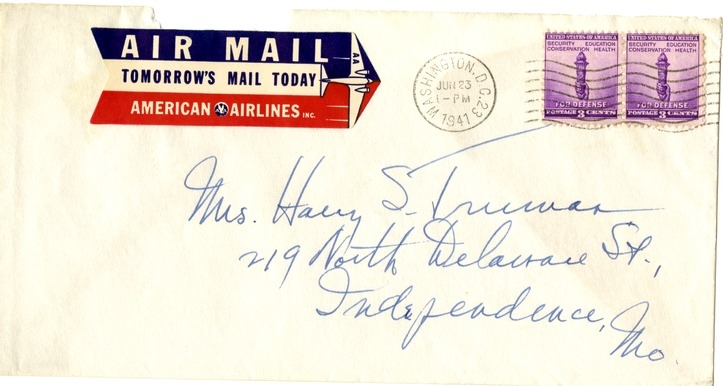 AIR MAIL
AA
TOMORROW'S MAIL TODAY
AMERICAN AA AIRLINES INC.
WASHINGTON, D.C. 23
JUN 23
1-PM
1941
UNITED STATES OF AMERICA
SECURITY EDUCATION
CONSERVATION HEALTH
FOR DEFENSE
POSTAGE 3 CENTS
UNITED STATES OF AMERICA
SECURITY EDUCATION
CONSERVATION HEALTH
FOR DEFENSE
POSTAGE 3 CENTS
Mrs. Harry S. Truman
219 North Delaware St.,
Independence,
Mo.